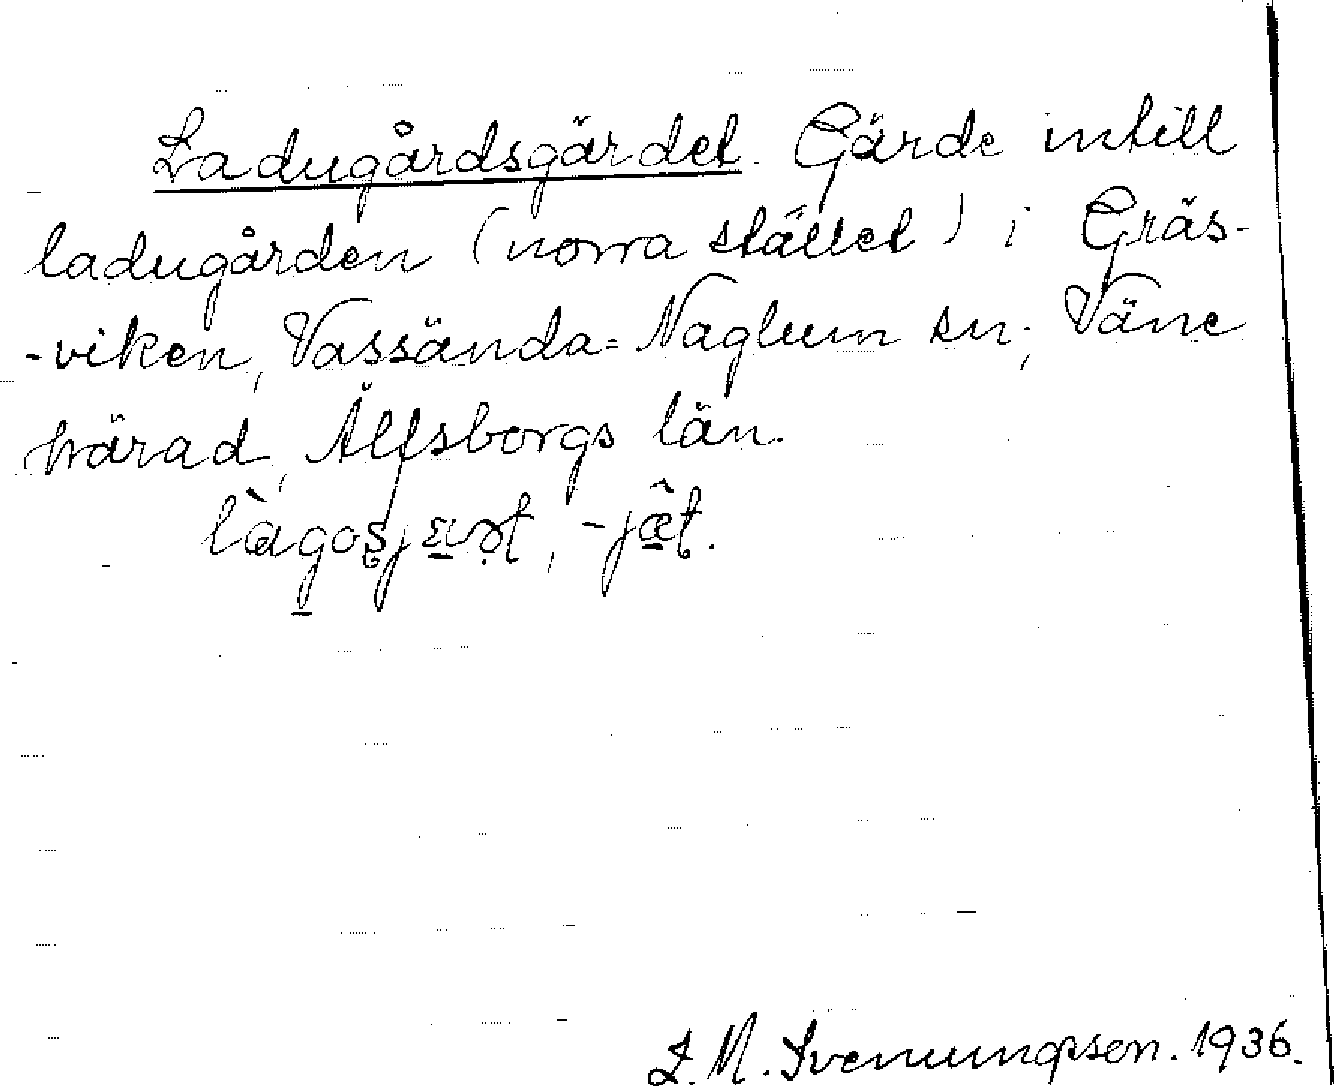 Ladugårdsgärdet. Gärde intill
ladugården (norra stället) i Gräs-
-viken, Vassända-Naglum sn; Väne
härad, Älfsborgs län.
L. M. Svenungsson. 1936.